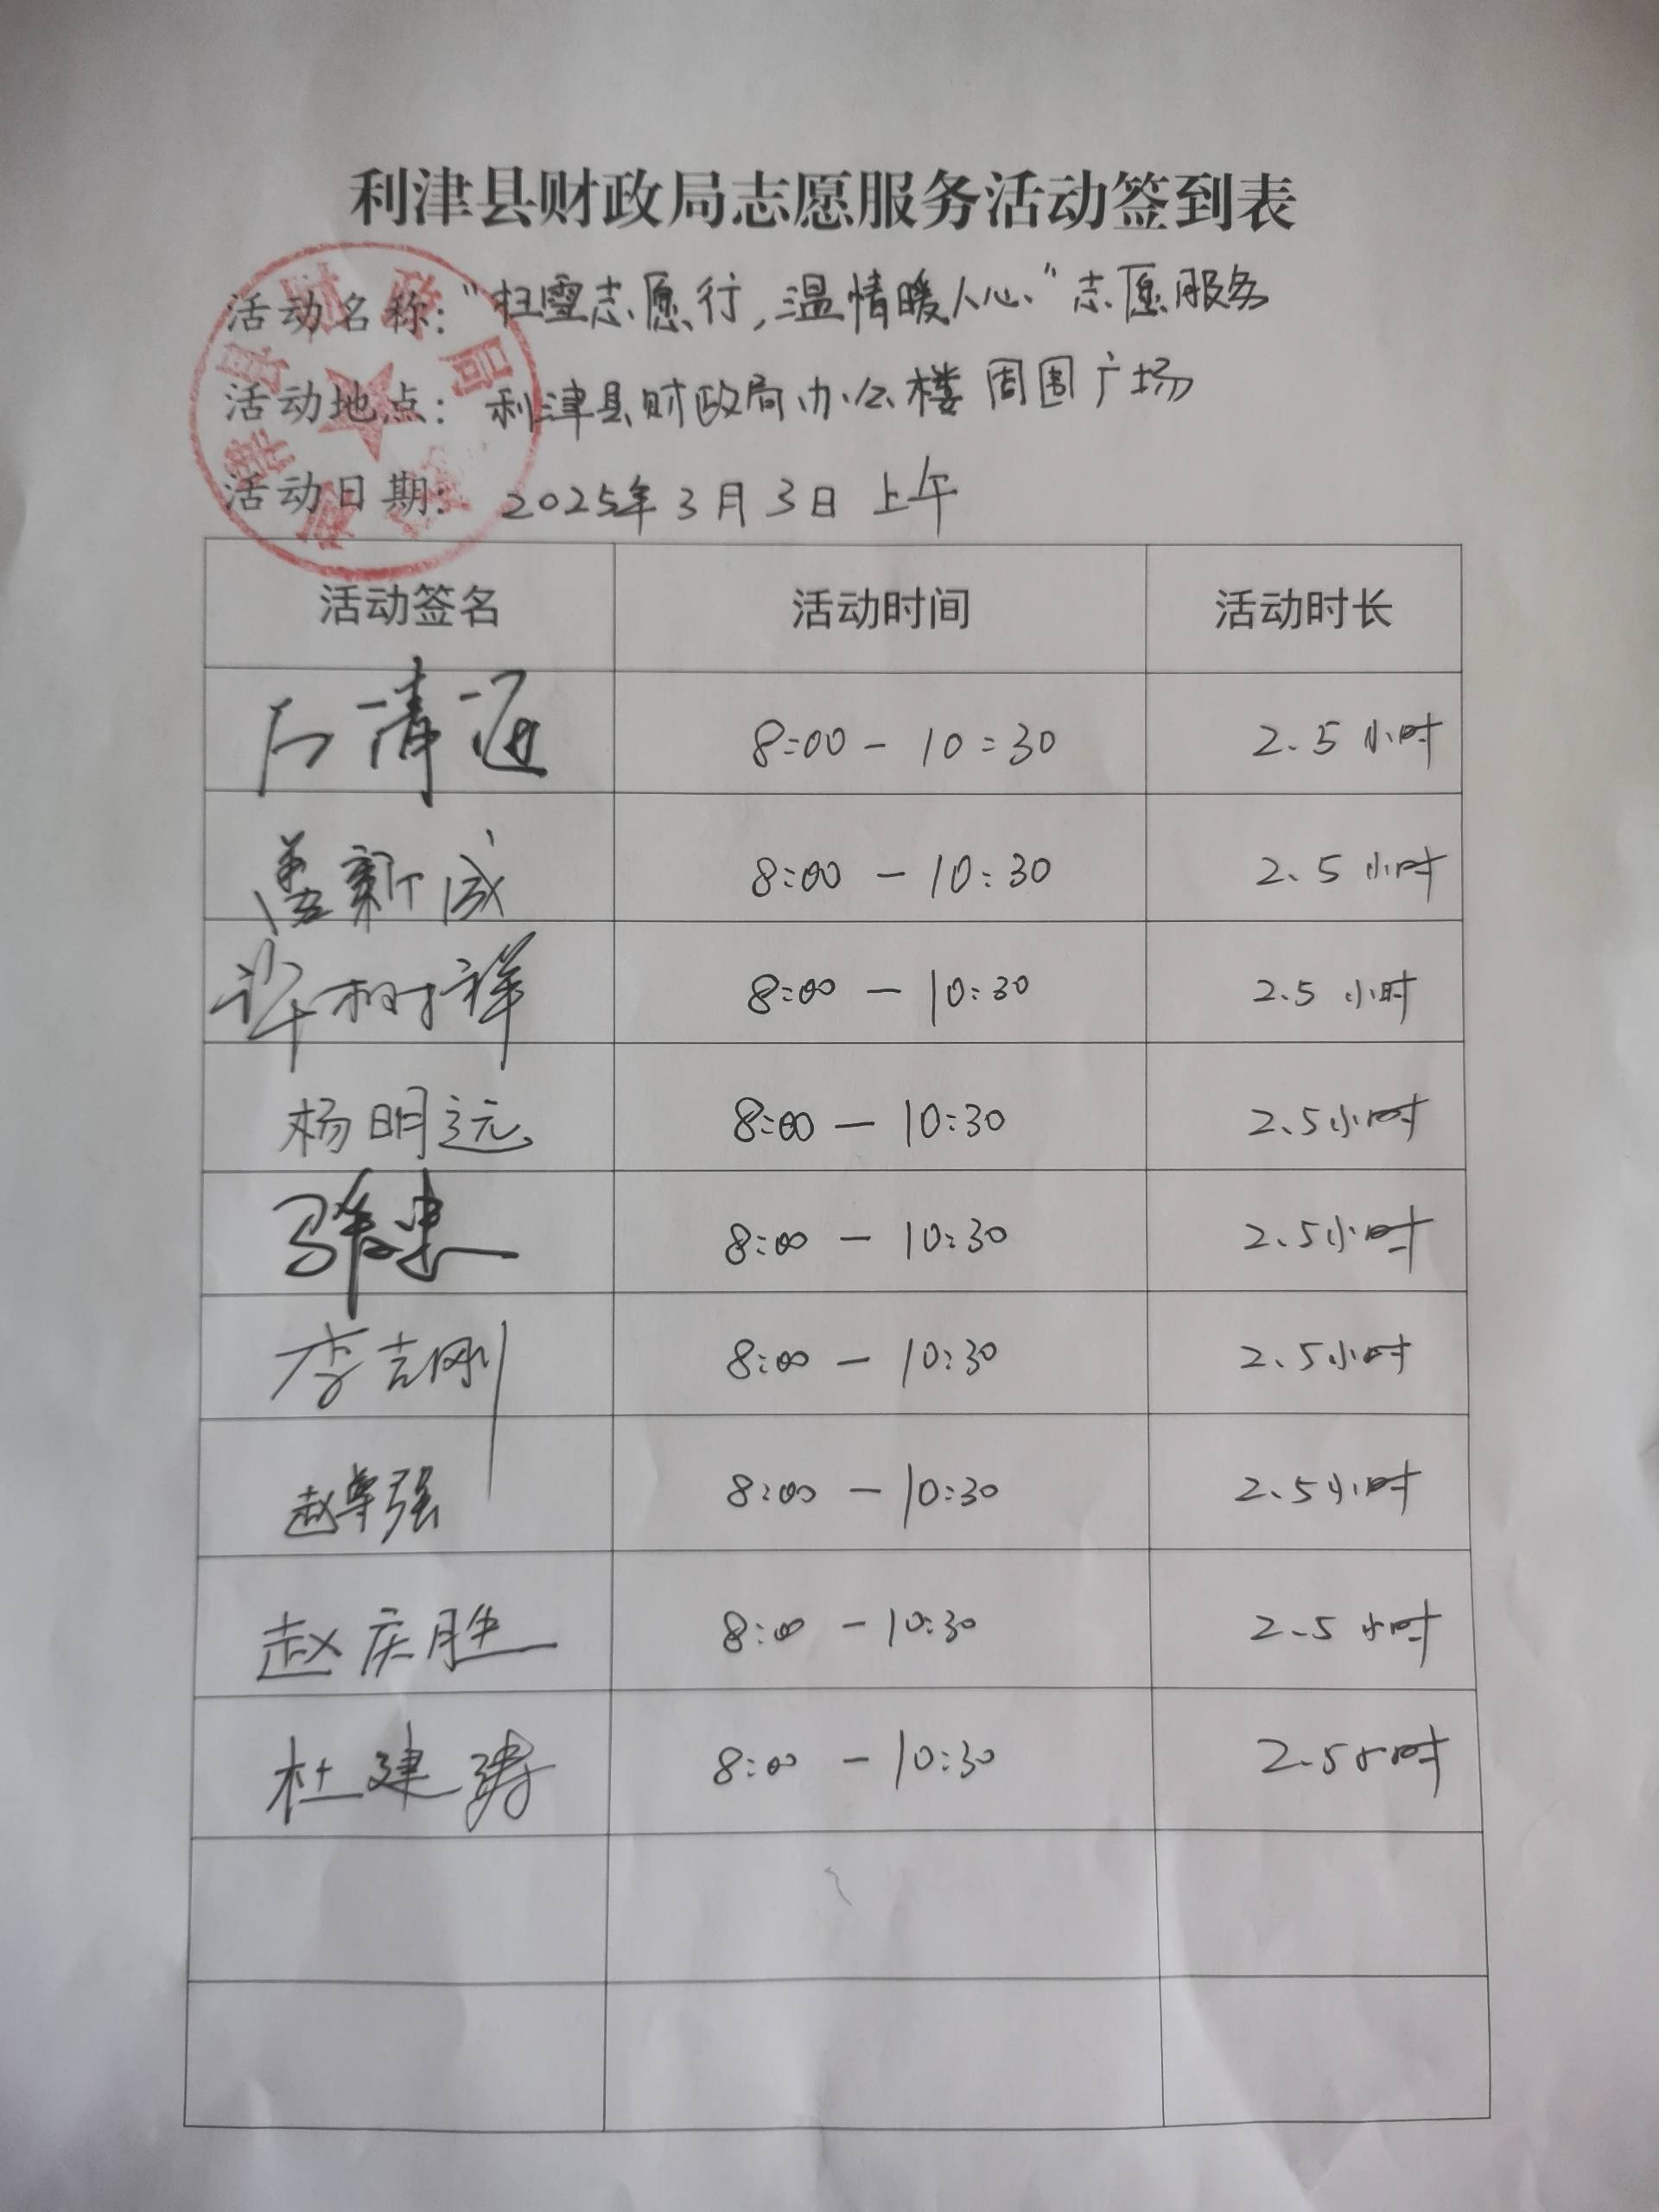 利津县财政局志愿服务活动签到表
活动名称:“扫雪志愿行,温情暖人心”志愿服务
活动地点:利津县财政局办公楼周围广场
活动日期:2025年3月3日上午
活动签名 活动时间 活动时长
清 8:00-10:30 2.5小时
盖新成 8:00-10:30 2.5小时
许树祥 8:00-10:30 2.5小时
杨明远 8:00-10:30 2.5小时
8:00-10:30 2.5小时
李志刚 8:00-10:30 2.5小时
赵尊强 8:00-10:30 2.5小时
赵庆胜 8:00-10:30 2.5小时
杜建涛 8:00-10:30 2.5小时